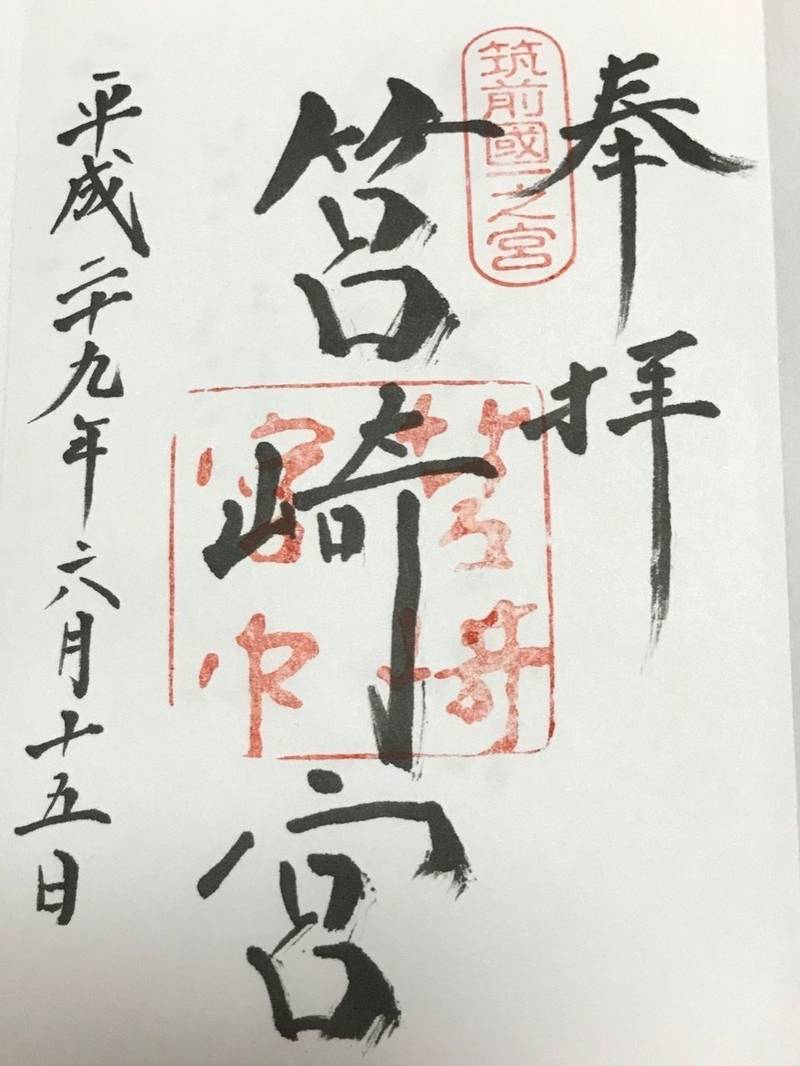 奉拝
筑前國一之宮
筥崎宮
筥崎宮印
平成二十九年六月十五日